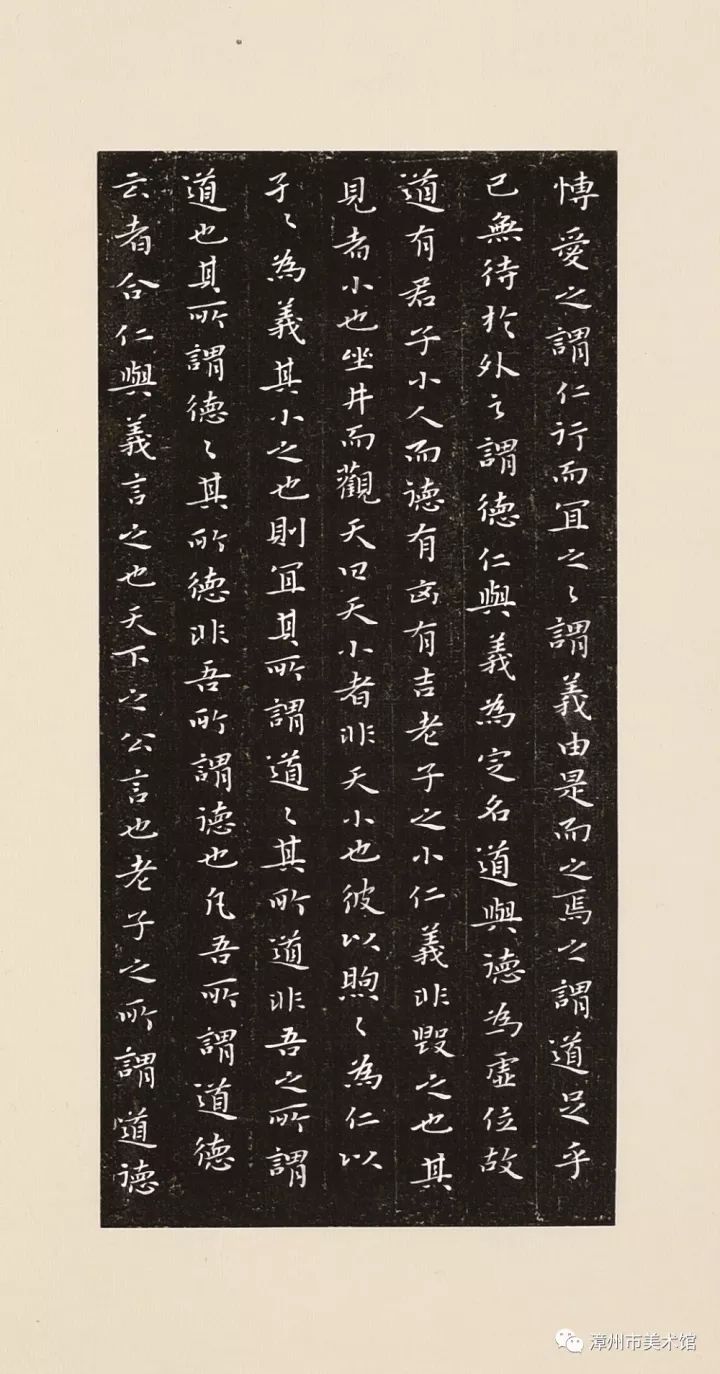 博愛之謂仁行而宜之〻謂義由是而之焉之謂道足乎
己無待於外之謂德仁與義為定名道與德為虛位故
道有君子小人而德有凶有吉老子之小仁義非毀之也其
見者小也坐井而觀天曰天小者非天小也彼以煦〻為仁以
孑〻為義其小之也則宜其所謂道〻其所道非吾之所謂
道也其所謂德〻其所德非吾所謂德也凡吾所謂道德
云者合仁與義言之也天下之公言也老子之所謂道德
漳州市美术馆